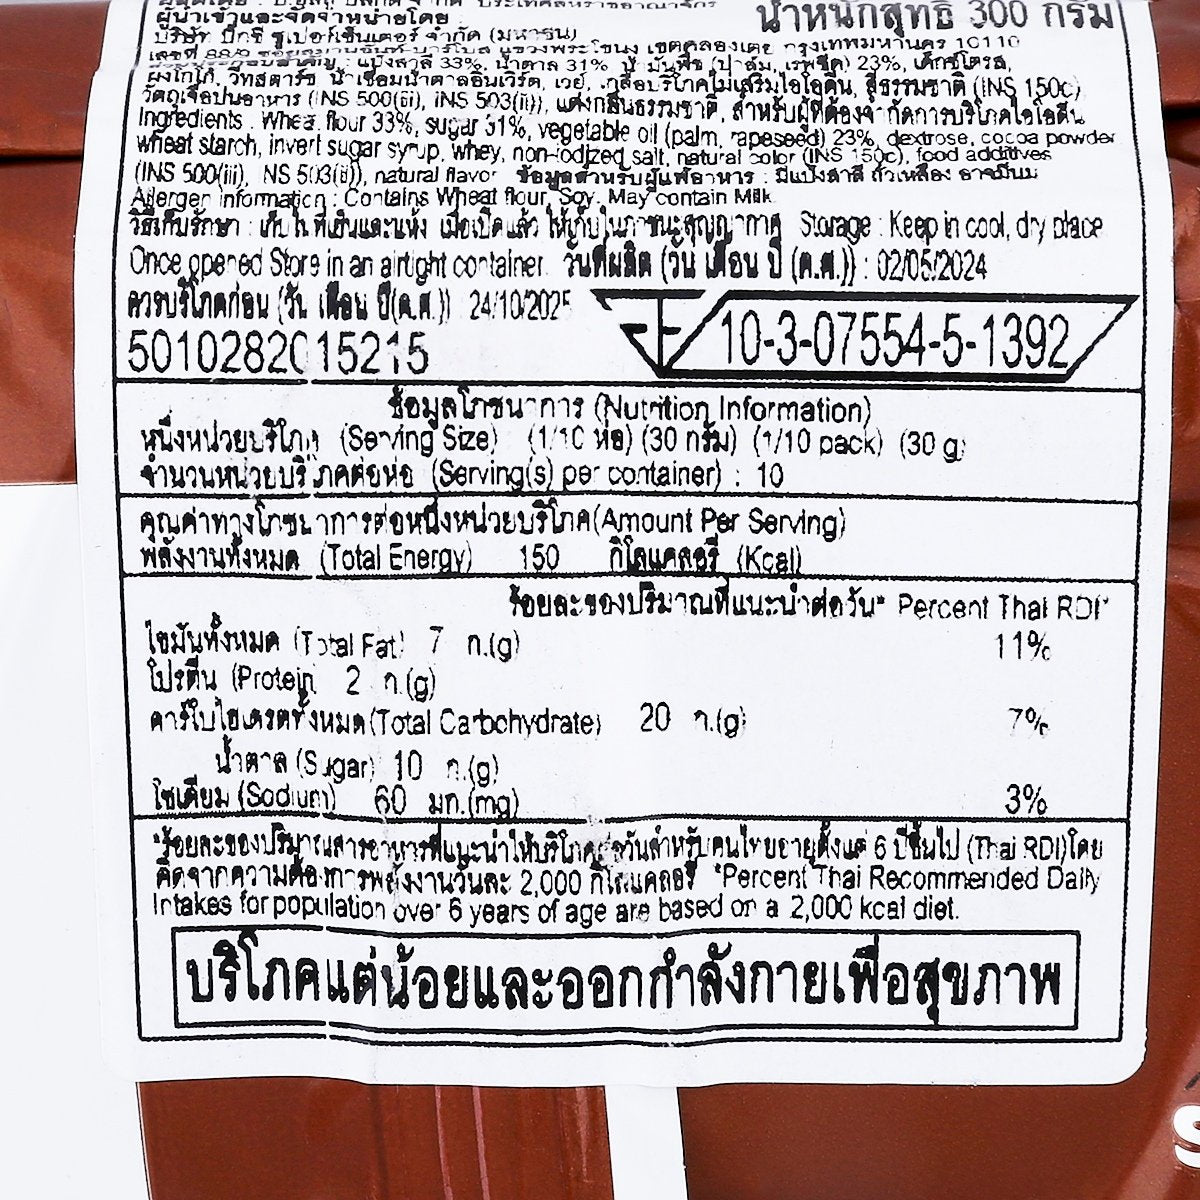 น้ำหนักสุทธิ 300 กรัม
ผู้นำเข้าและจัดจำหน่ายโดย :
บริษัท บิ๊กซี ซูเปอร์เซ็นเตอร์ จำกัด (มหาชน)
แขวงพระโขนง เขตคลองเตย กรุงเทพมหานคร 10110
แป้งสาลี 33%, น้ำตาล 31% น้ำมันพืช (ปาล์ม, เรพซีด) 23%, เด็กซ์โตรส,
ผงโกโก้, วีทสตาร์ช น้ำเชื่อมน้ำตาลอินเวิร์ต, เวย์, เกลือบริโภคไม่เสริมไอโอดีน, สีธรรมชาติ (INS 150c)
วัตถุเจือปนอาหาร (INS 500(iii), INS 503(ii)), แต่งกลิ่นธรรมชาติ, สำหรับผู้ที่ต้องจำกัดการบริโภคไอโอดีน
Ingredients : Wheat flour 33%, sugar 31%, vegetable oil (palm, rapeseed) 23%, dextrose, cocoa powder
wheat starch, invert sugar syrup, whey, non-iodized salt, natural color (INS 150c), food additives
(INS 500(iii), INS 503(ii)), natural flavor ข้อมูลสำหรับผู้แพ้อาหาร : มีแป้งสาลี ถั่วเหลือง อาจมีนม
Allergen Information : Contains Wheat flour, Soy. May contain Milk
วิธีเก็บรักษา : เก็บในที่เย็นและแห้ง เมื่อเปิดแล้ว ให้เก็บในภาชนะสุญญากาศ Storage : Keep in cool, dry place
Once opened Store in an airtight container. วันที่ผลิต (วัน เดือน ปี (ค.ศ.)) : 02/05/2024
ควรบริโภคก่อน (วัน เดือน ปี(ค.ศ.)) 24/10/2025
5010282015215
10-3-07554-5-1392
ข้อมูลโภชนาการ (Nutrition Information)
หนึ่งหน่วยบริโภค (Serving Size) (1/10 ห่อ) (30 กรัม) (1/10 pack) (30 g)
จำนวนหน่วยบริโภคต่อห่อ (Serving(s) per container) : 10
คุณค่าทางโภชนาการต่อหนึ่งหน่วยบริโภค(Amount Per Serving)
พลังงานทั้งหมด (Total Energy) 150 กิโลแคลอรี (Kcal)
ร้อยละของปริมาณที่แนะนำต่อวัน* Percent Thai RDI*
ไขมันทั้งหมด (Total Fat) 7 ก.(g) 11%
โปรตีน (Protein) 2 ก.(g)
คาร์โบไฮเดรตทั้งหมด(Total Carbohydrate) 20 ก.(g) 7%
น้ำตาล (Sugar) 10 ก.(g)
โซเดียม (Sodium) 60 มก.(mg) 3%
*ร้อยละของปริมาณสารอาหารที่แนะนำให้บริโภคต่อวันสำหรับคนไทยอายุตั้งแต่ 6 ปีขึ้นไป (Thai RDI)โดย
คิดจากความต้องการพลังงานวันละ 2,000 กิโลแคลอรี *Percent Thai Recommended Daily
Intakes for population over 6 years of age are based on a 2,000 kcal diet.
บริโภคแต่น้อยและออกกำลังกายเพื่อสุขภาพ